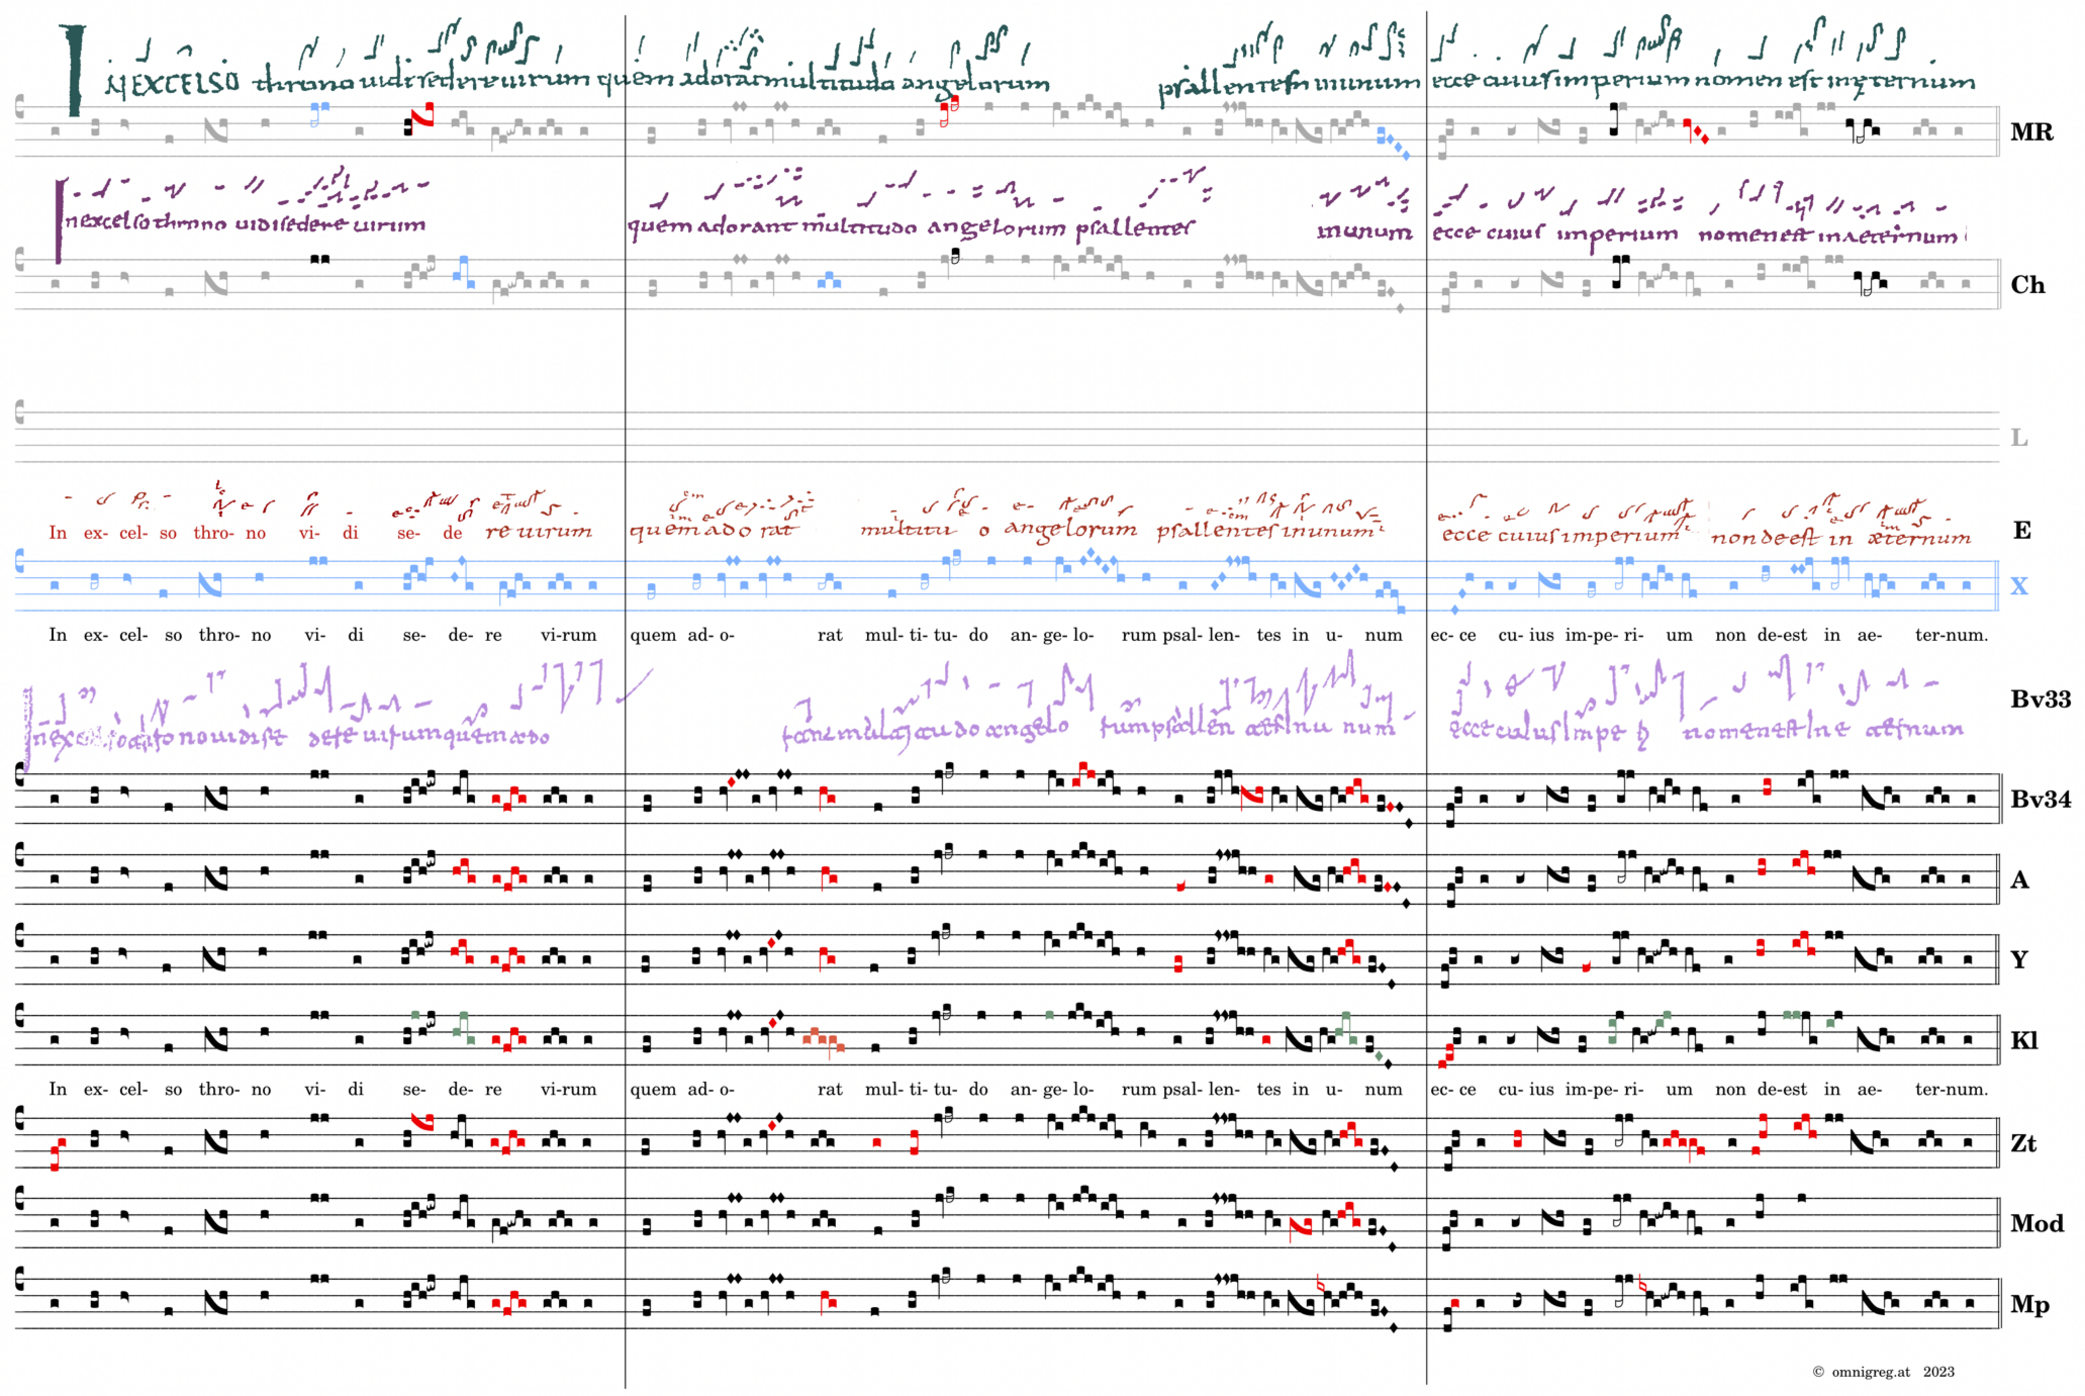 IN EXCELSO throno uidi sedere uirum quem adorat multitudo angelorum psallentes In unum ecce cuius imperium nomen est in ęternum
MR
In excelso throno uidi sedere uirum quem adorant multitudo angelorum psallentes in unum ecce cuius imperium nomen est in aeternum
Ch
L
In ex- cel- so thro- no vi- di se- de re uirum quem adorat multitu o angelorum psallentes in unum ecce cuius imperium non de est in æternum
E
X
In ex- cel- so thro- no vi- di se- de- re vi-rum quem ad- o- rat mul- ti- tu- do an- ge- lo- rum psal- len- tes in u- num ec- ce cu- ius im-pe- ri- um non de-est in ae- ter-num.
Bv33
Bv34
A
Y
Kl
In ex- cel- so thro- no vi- di se- de- re vi-rum quem ad- o- rat mul- ti- tu- do an- ge- lo- rum psal- len- tes in u- num ec- ce cu- ius im-pe- ri- um non de-est in ae- ter-num.
Zt
Mod
Mp
© omnigreg.at 2023